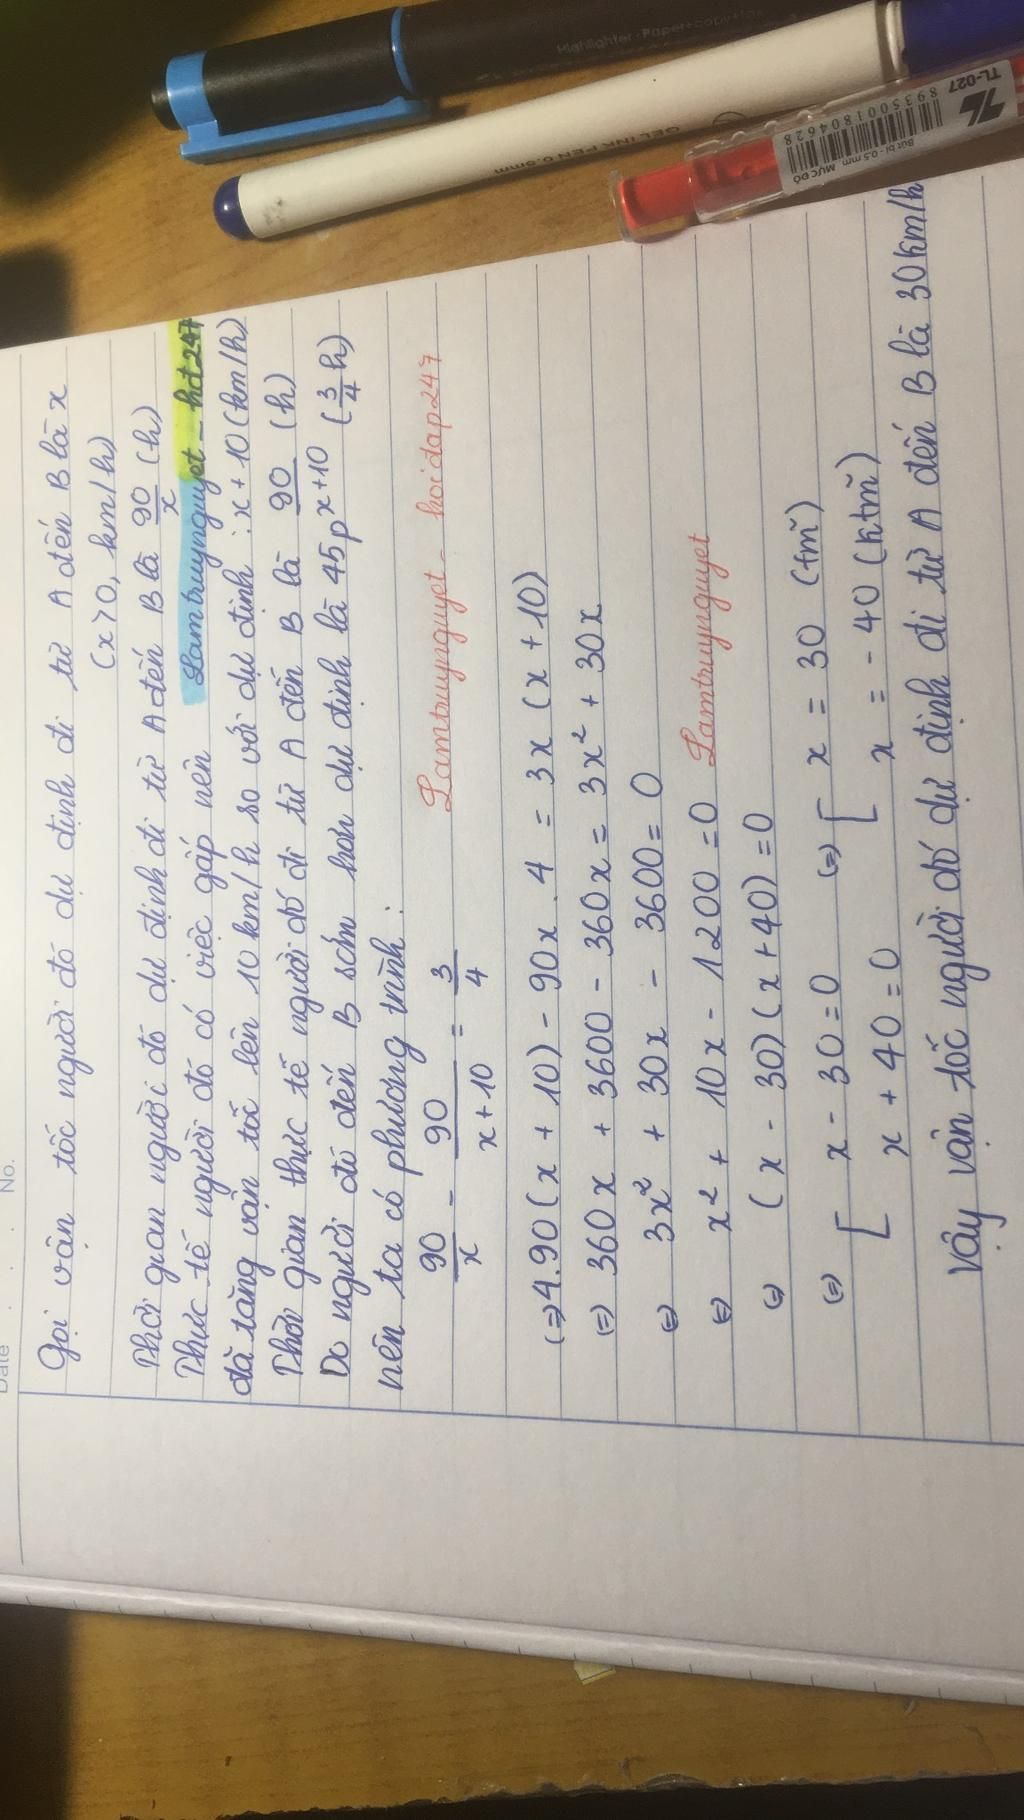 Date No.
Gọi vận tốc người đó dự định đi từ A đến B là x
(x > 0, km/h)
Thời gian người đó dự định đi từ A đến B là 90/x (h)
Lamtruynguyet _ hđ247
Thực tế người đó có việc gấp nên
đã tăng vận tốc lên 10 km/h so với dự định : x + 10 (km/h)
Thời gian thực tế người đó đi từ A đến B là 90/x+10 (h)
Do người đó đến B sớm hơn dự định là 45p (3/4 h)
nên ta có phương trình :
Lamtruynguyet - hoidap247
90/x - 90/x+10 = 3/4
(=) 4.90(x + 10) - 90x . 4 = 3x (x + 10)
(=) 360x + 3600 - 360x = 3x² + 30x
(=) 3x² + 30x - 3600 = 0
(=) x² + 10x - 1200 = 0 Lamtruynguyet
(=) (x - 30)(x + 40) = 0
(=) [ x - 30 = 0 (=) [ x = 30 (tm)
x + 40 = 0 x = - 40 (ktm)
Vậy vận tốc người đó dự định đi từ A đến B là 30km/h
Highlighter · Paper+copy+fax
GEL INK PEN 0.5mm
TL-027
8935001804628
Bút bi - 0.5 mm MỰC ĐỎ